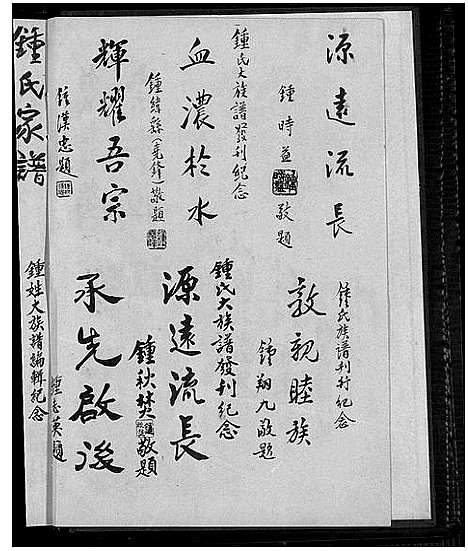 源遠流長
鍾時益
敬題
鍾氏大族譜發刊紀念
血濃於水
敬題
輝耀吾宗
鍾漢忠題
鍾氏家譜
鍾氏族譜刊行紀念
敦親睦族
鍾翔九敬題
鍾氏大族譜發刊紀念
源遠流長
鍾秋焚
敬題
承先啟後
鍾姓大族譜編輯紀念